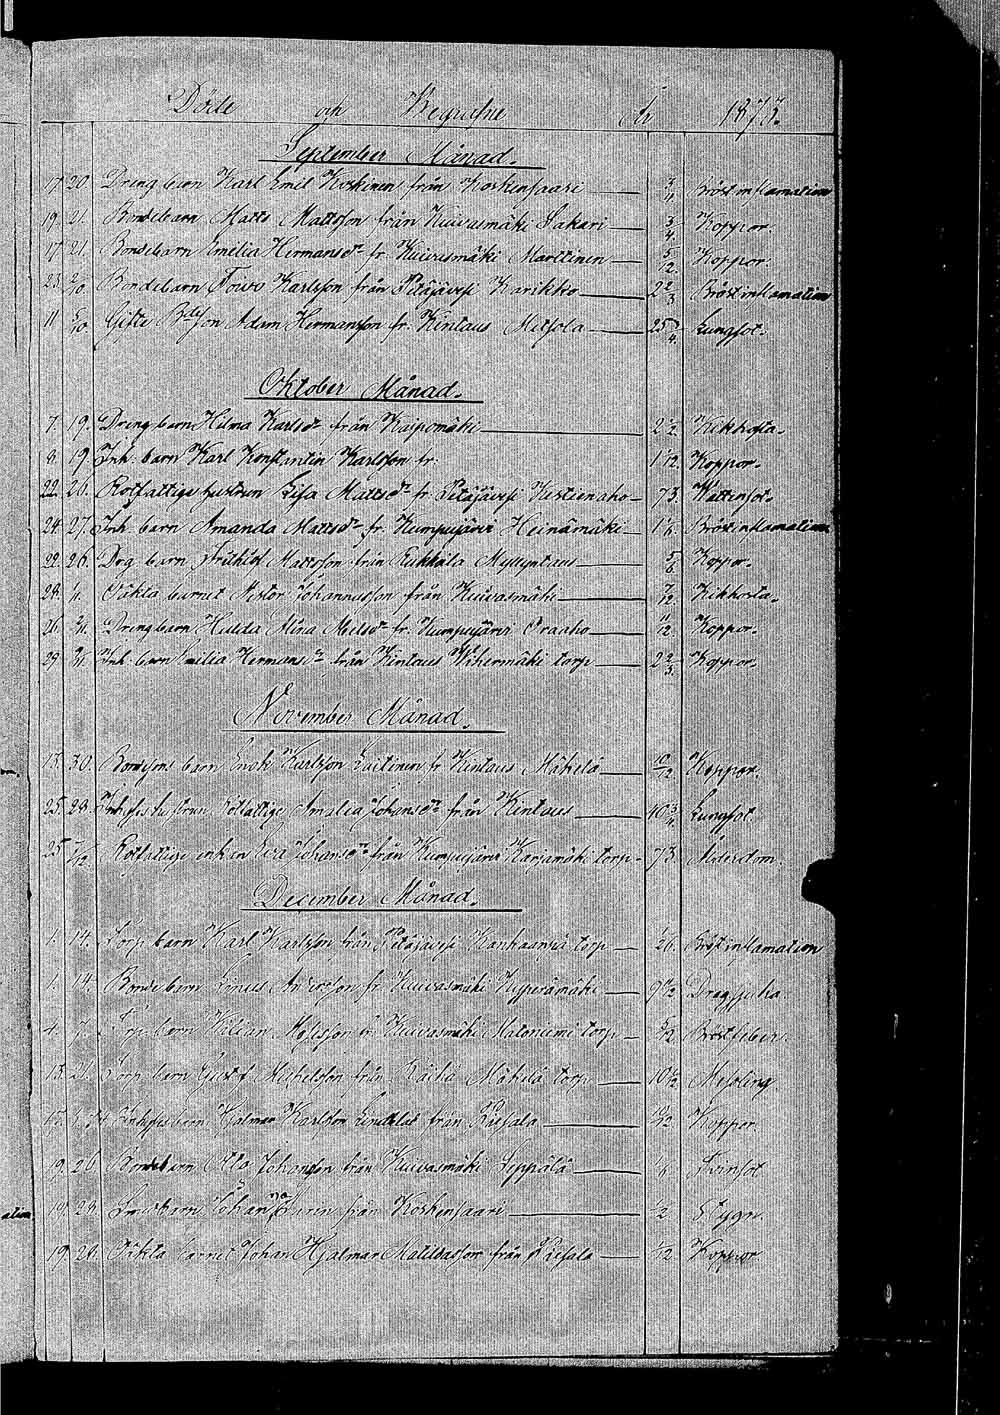 Döde och Begrafne År 1873.
September Månad.
17 20. Dreng barn Karl Emil Koskinen från Koskensaari 3/4 Bröstinflamation
19. 21. Bondebarn Matts Mattsson från Kuivasmäki Sakari 3/4 Koppor.
17 21. Bondebarn Emelia Hermansdr fr. Kuivasmäki Marttinen 5/12. Koppor.
23. 2/10. Bondebarn Toivo Karlsson från Petäjävesi Karikko 2 2/3 Bröstinflamation
11 5/10 Gifte Bdeson Adam Hermansson fr. Kintaus Metsola 25 3/4. Lungsot.
Oktober Månad.
7. 19. Dreng barn Hilma Karlsdr från Kaipomäki 2 1/2. Kikhosta.
8. 19. Inh. barn Karl Konstantin Karlsson fr. 1 1/12. Koppor.
22. 26. Rotfattige hustrun Lisa Mattsdr fr. Petäjävesi Kustienaho 73. Wattensot.
24. 27. Inh. barn Amanda Mattsdr fr. Kumpujärvi Heinämäki 1 1/6. Bröstinflamation
22. 26. Drg. barn Mattsson från Myllyntaus 5/6 Koppor.
28. Oäkta barnet Nestor Johannesson från Kuivasmäki 7/12. Kikhosta.
26. 2/11. Dreng barn Hulda Mina fr. Kumpujärvi Oraaho 11/12. Koppor.
29 Inh. barn Emilia Hermansdr från Kintaus Wihermäki torp 2 2/3. Koppor.
November Månad.
13. 30. Bondesons barn Enok Karlsson Laitinen fr Kintaus Mäkelä 10/12 Koppor.
25. 28. Inhyses hustrun Rotfattige Amalia Johansdr från Kintaus 40 3/4 Lungsot.
25 7/12. Rotfattige enkan Eva Johansdr från Kumpujärvi Karjamäki torp 73. Ålderdom.
December Månad.
1. 14. Torp barn Karl Karlsson från Petäjävesi Kanhaansia torp 1/26. Bröstinflamation
1. 14. Bonde barn Linus Andersson fr. Kuivasmäki Kyperämäki 9 1/2 Dragsjuka.
4. 7. Torp. barn Kilian fr. Kuivasmäki Mataniemi torp 5/12 Bröstfeber.
13. 21. Torp barn Gustaf Mickelsson från Mäkelä torp 10 1/2. Messling.
17. Inhyses barn Hjalmar Karlsson från Piesala Koppor.
19. 26. Bondebarn Otto Johansson från Kuivasmäki Seppälä Tvinsot.
19. 28. Smedbarn Johanna från Koskensaari 1/2 Stygn.
19. 28. Oäkta barnet Johan Hjalmar från Piesala 1/12. Koppor